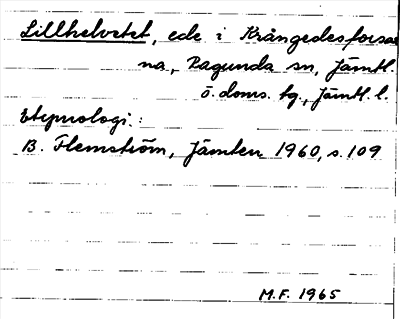 Lillhelvetet, ede i Krångedesforsar
na, Ragunda sn, Jämtl.
ö. doms. tg, Jämtl. l.
Etymologi:
B. Flemström, Jämten 1960, s. 109
M.F. 1965